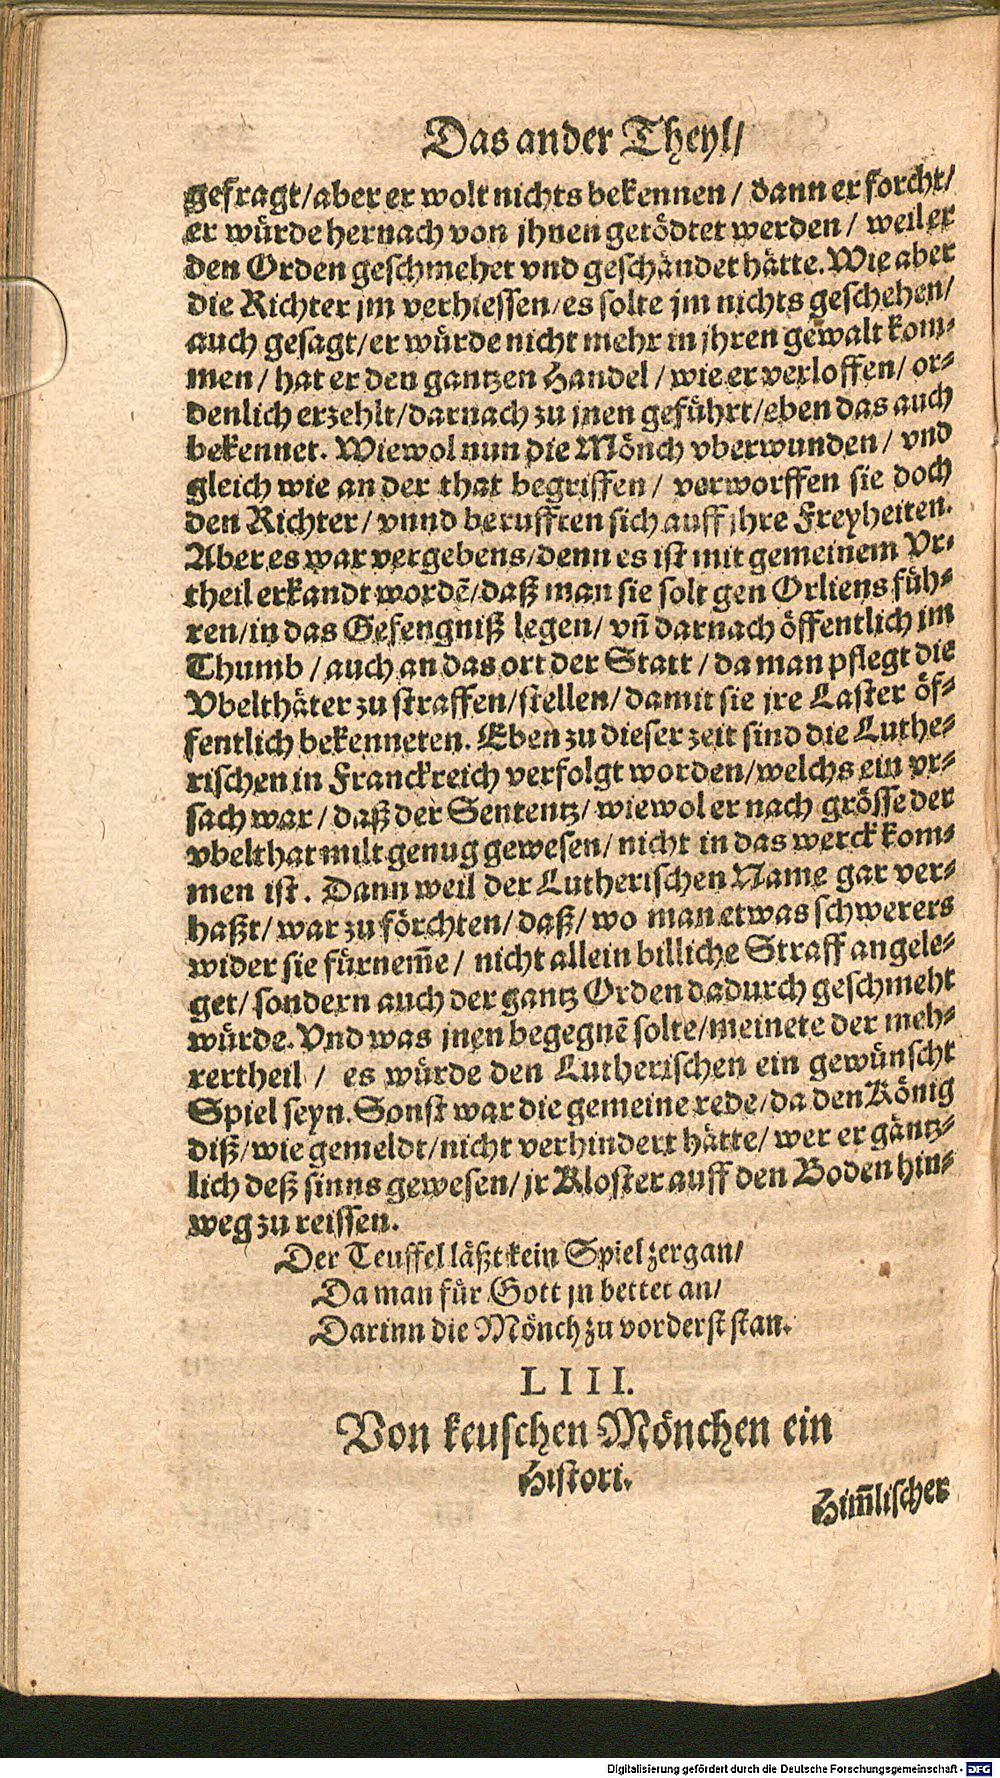 Das ander Theyl/
gefragt/aber er wolt nichts bekennen / dann er forcht/
er würde hernach von jhnen getödtet werden / weil er
den Orden geschmehet vnd geschändet hätte. Wie aber
die Richter jm verhiessen/es solte jm nichts geschehen/
auch gesagt/er würde nicht mehr in jhren gewalt kom-
men / hat er den gantzen Handel / wie er verloffen/ or-
denlich erzehlt/darnach zu jnen geführt/eben das auch
bekennet. Wiewol nun die Mönch vberwunden/ vnd
gleich wie an der that begriffen / verworffen sie doch
den Richter / vnnd berufften sich auff jhre Freyheiten.
Aber es war vergebens/denn es ist mit gemeinem Vr-
theil erkandt wordē/daß man sie solt gen Orliens füh-
ren/in das Gefengniß legen/ vn̄ darnach öffentlich im
Thumb / auch an das ort der Statt / da man pflegt die
Vbelthäter zu straffen/stellen/ damit sie jre Laster öf-
fentlich bekenneten. Eben zu dieser zeit sind die Luthe-
rischen in Franckreich verfolgt worden/welchs ein vr-
sach war / daß der Sententz/ wiewol er nach grösse der
vbelthat milt genug gewesen/ nicht in das werck kom-
men ist. Dann weil der Lutherischen Name gar ver-
haßt/ war zu förchten/ daß/ wo man etwas schwerers
wider sie fürnem̄e / nicht allein billiche Straff angele-
get/ sondern auch der gantz Orden dadurch geschmeht
würde. Vnd was jnen begegnē solte/meinete der meh-
rertheil / es würde den Lutherischen ein gewünscht
Spiel seyn. Sonst war die gemeine rede/da den König
diß/wie gemeldt/nicht verhindert hätte/ wer er gäntz-
lich deß sinns gewesen/ jr Kloster auff den Boden hin-
weg zu reissen.
Der Teuffel läßt kein Spiel zergan/
Da man für Gott jn bettet an/
Darinn die Mönch zu vorderst stan.
LIII.
Von keuschen Mönchen ein
Histori.
Him̄lischer
Digitalisierung gefördert durch die Deutsche Forschungsgemeinschaft - DFG